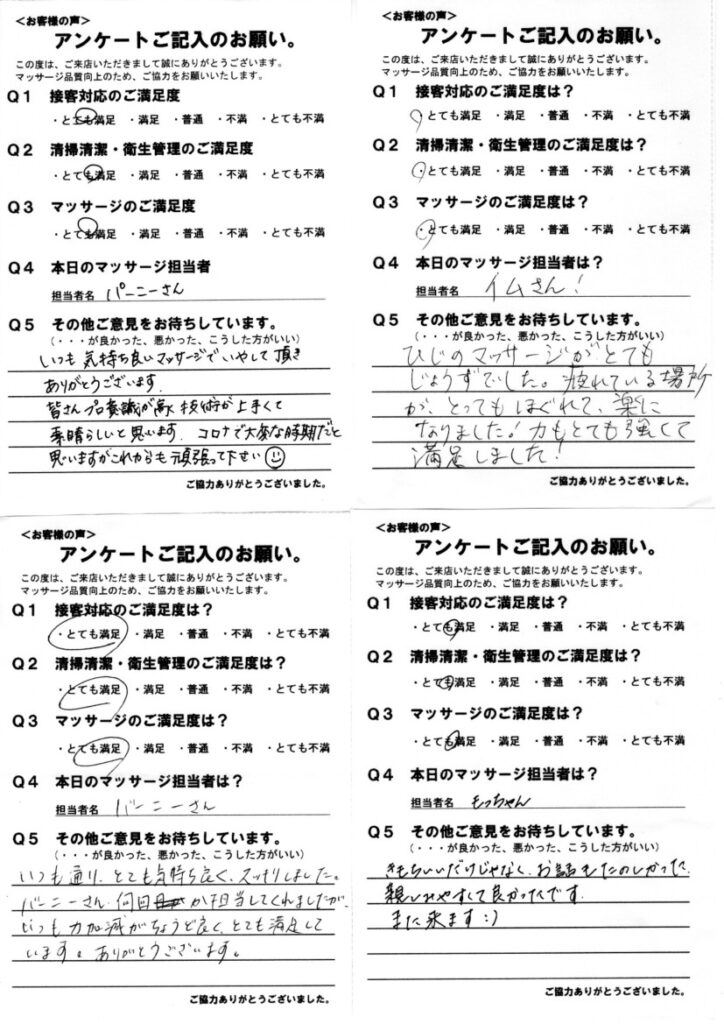 <お客様の声>
アンケートご記入のお願い。
この度は、ご来店いただきまして誠にありがとうございます。
マッサージ品質向上のため、ご協力をお願いいたします。
Q1 接客対応のご満足度
・とても満足 ・満足 ・普通 ・不満 ・とても不満
Q2 清掃清潔・衛生管理のご満足度
・とても満足 ・満足 ・普通 ・不満 ・とても不満
Q3 マッサージのご満足度
・とても満足 ・満足 ・普通 ・不満 ・とても不満
Q4 本日のマッサージ担当者
担当者名 バーニーさん
Q5 その他ご意見をお待ちしています。
(・・・が良かった、悪かった、こうした方がいい)
いつも気持ち良いマッサージでいやして頂き
ありがとうございます.
皆さんプロ意識が高く技術が上手くて
素晴らしいと思います. コロナで大変な時期だと
思いますがこれからも頑張って下さい
ご協力ありがとうございました。
<お客様の声>
アンケートご記入のお願い。
この度は、ご来店いただきまして誠にありがとうございます。
マッサージ品質向上のため、ご協力をお願いいたします。
Q1 接客対応のご満足度は?
・とても満足 ・満足 ・普通 ・不満 ・とても不満
Q2 清掃清潔・衛生管理のご満足度は?
・とても満足 ・満足 ・普通 ・不満 ・とても不満
Q3 マッサージのご満足度は?
・とても満足 ・満足 ・普通 ・不満 ・とても不満
Q4 本日のマッサージ担当者は?
担当者名 イムさん!
Q5 その他ご意見をお待ちしています。
(・・・が良かった、悪かった、こうした方がいい)
ひじのマッサージがとても
じょうずでした。疲れている場所
が、とってもほぐれて、楽に
なりました!力もとても強くて
満足しました!
ご協力ありがとうございました。
<お客様の声>
アンケートご記入のお願い。
この度は、ご来店いただきまして誠にありがとうございます。
マッサージ品質向上のため、ご協力をお願いいたします。
Q1 接客対応のご満足度は?
・とても満足 ・満足 ・普通 ・不満 ・とても不満
Q2 清掃清潔・衛生管理のご満足度は?
・とても満足 ・満足 ・普通 ・不満 ・とても不満
Q3 マッサージのご満足度は?
・とても満足 ・満足 ・普通 ・不満 ・とても不満
Q4 本日のマッサージ担当者は?
担当者名 バーニーさん
Q5 その他ご意見をお待ちしています。
(・・・が良かった、悪かった、こうした方がいい)
いつも通り、とても気持ち良く、スッキリしました。
バーニーさん、何回か担当してくれましたが、
いつも力加減がちょうど良く、とても満足して
います。ありがとうございます。
ご協力ありがとうございました。
<お客様の声>
アンケートご記入のお願い。
この度は、ご来店いただきまして誠にありがとうございます。
マッサージ品質向上のため、ご協力をお願いいたします。
Q1 接客対応のご満足度は?
・とても満足 ・満足 ・普通 ・不満 ・とても不満
Q2 清掃清潔・衛生管理のご満足度は?
・とても満足 ・満足 ・普通 ・不満 ・とても不満
Q3 マッサージのご満足度は?
・とても満足 ・満足 ・普通 ・不満 ・とても不満
Q4 本日のマッサージ担当者は?
担当者名 もっちゃん
Q5 その他ご意見をお待ちしています。
(・・・が良かった、悪かった、こうした方がいい)
きもちいいだけじゃなく、お話もたのしかった.
親しみやすくて良かったです.
また来ます :)
ご協力ありがとうございました。